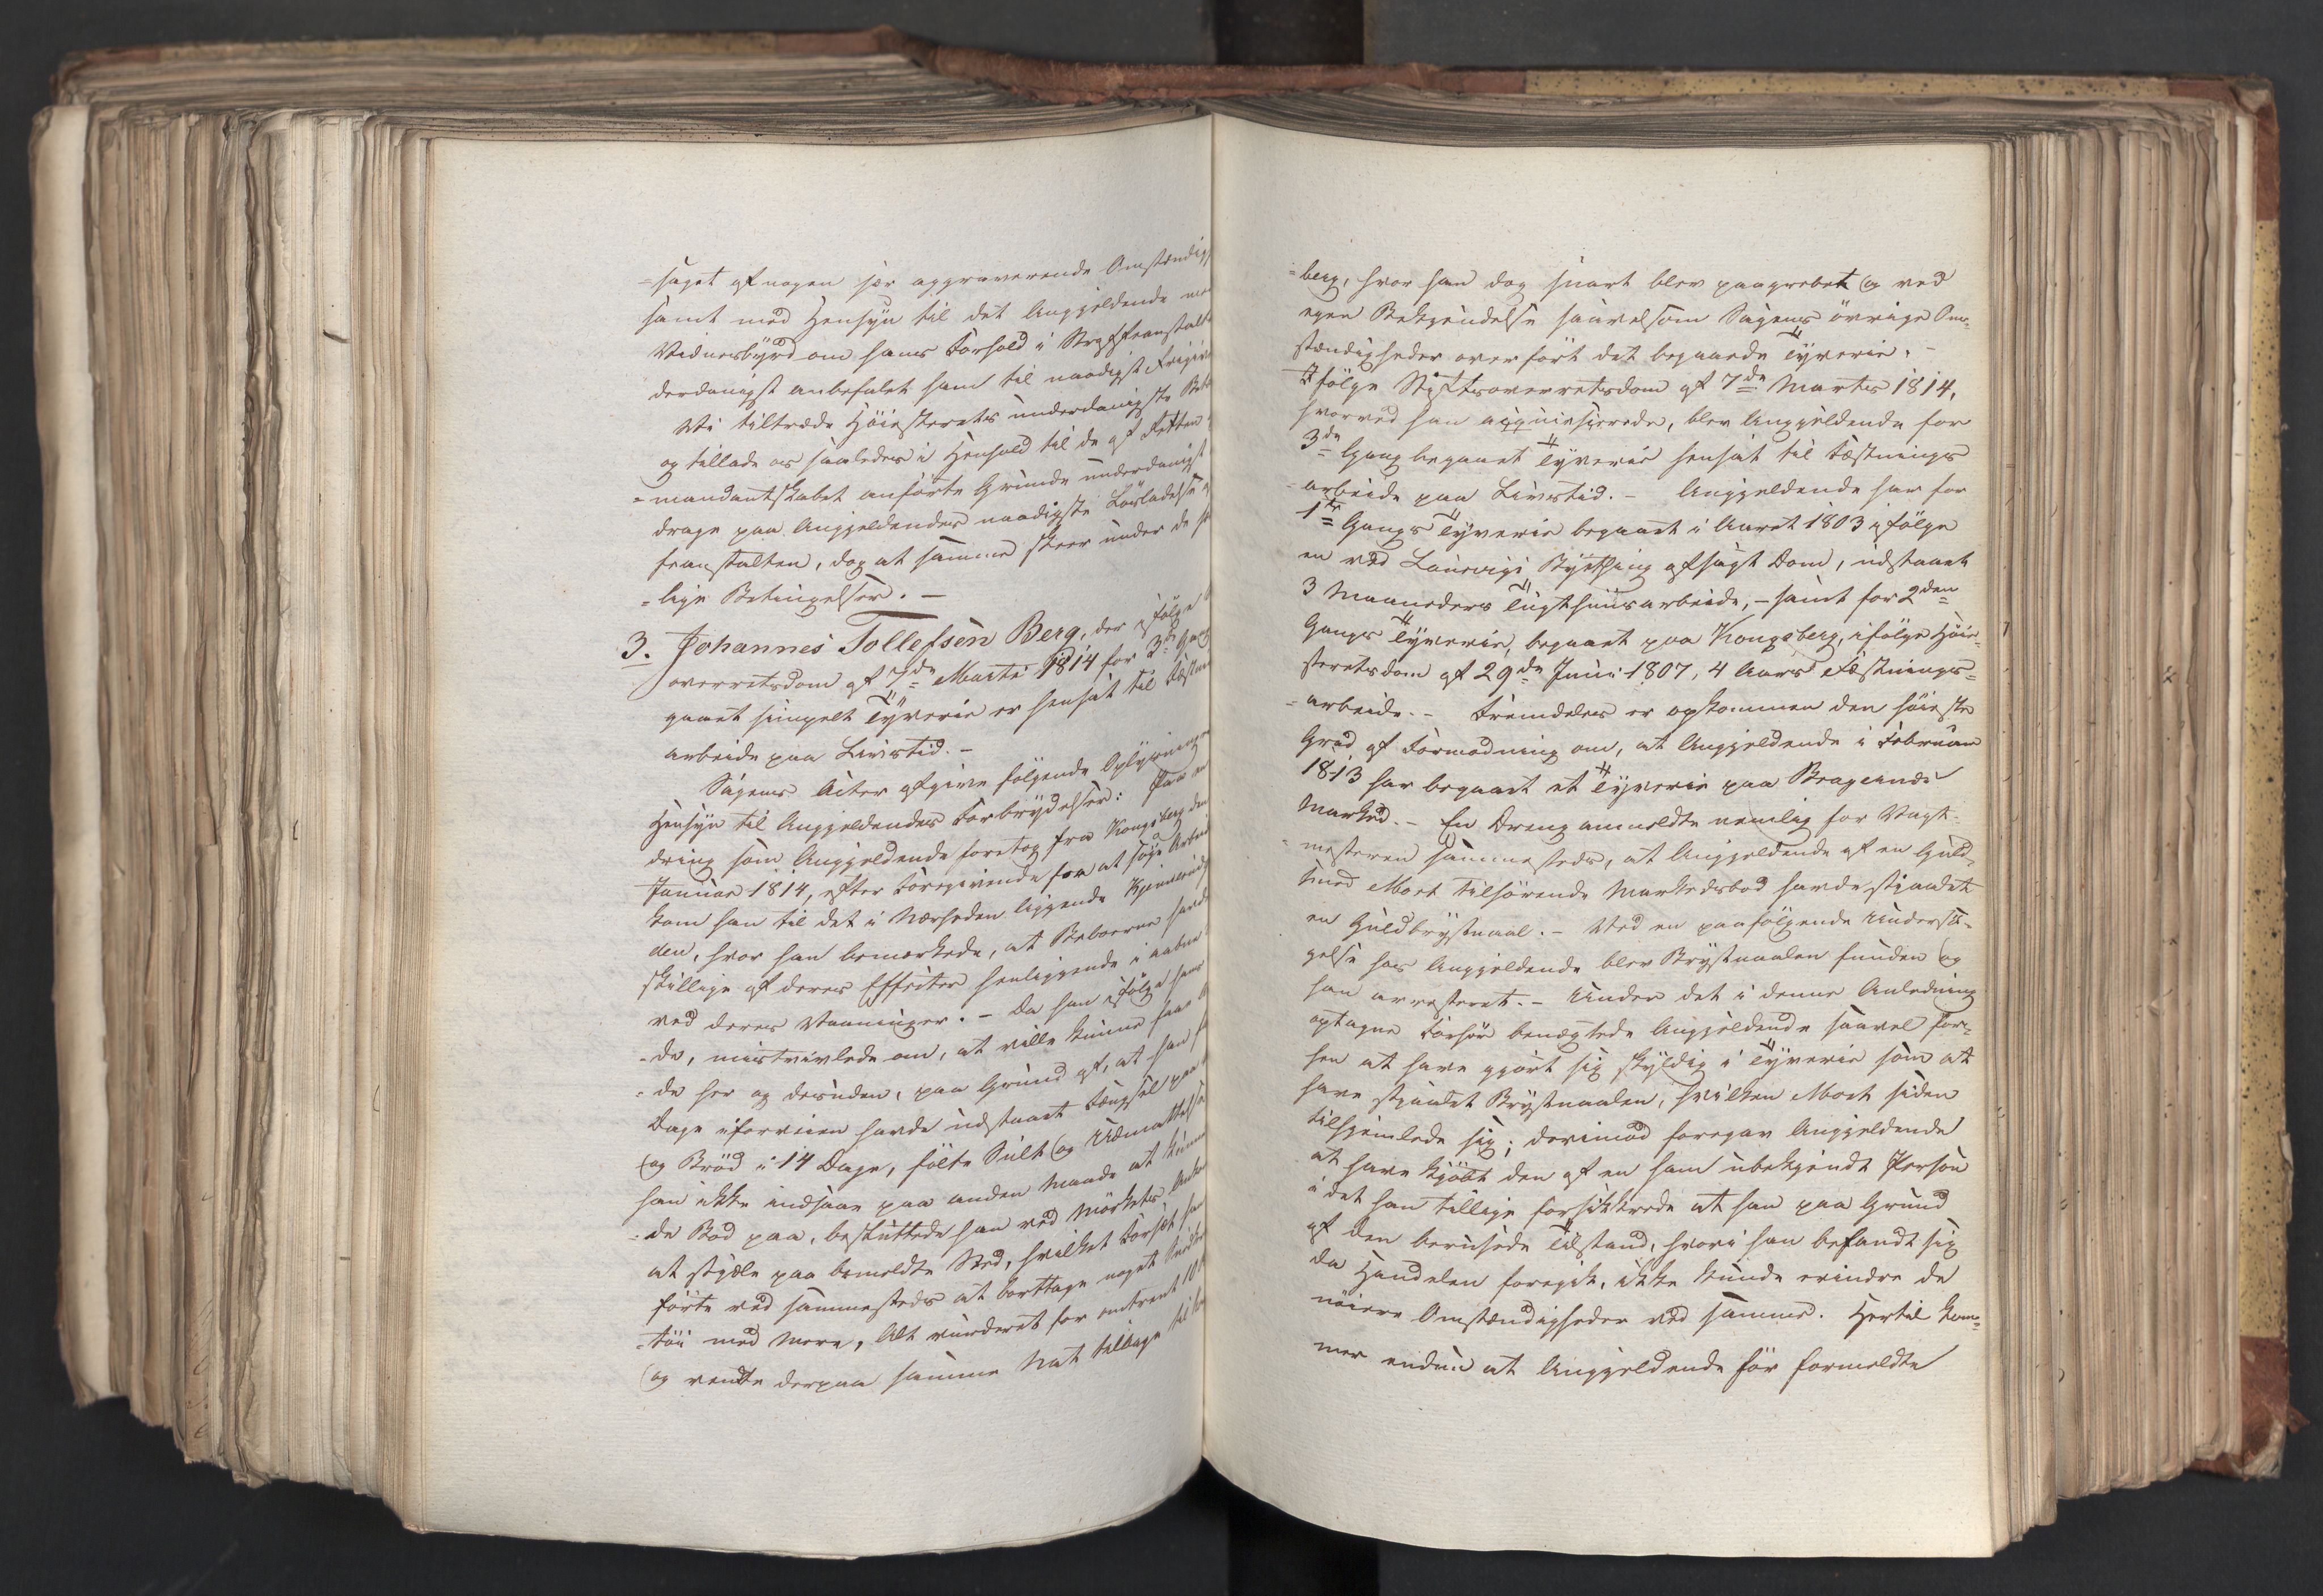 =saget af nogen for aggraverende Omstændig
samt med Hensyn til det Angjeldende
Vidnesbyrd om hans Forhold i Straffeanstalt
derdanigst anbefalet ham til naadigst Frigiv
Vi tiltræde Høiesterets underdanigste
og tillade os saaledes i Henhold til de af Retten
=mandantskabet anførte Grunde underdanigst
drage paa Angjeldendes naadigste Løsladelse
feanstalten, dog at samme skeer under de
=lige Betingelser. —
3. Johannes Tollefsen Berg, der ifølge
overretsdom af 7de Marti 1814 for 3de Gang
gaaet simpelt Tyverie er hensat til Fæstn
arbeide paa Livstid. —
Sagens Acter afgive følgende Oplysninger
Hensyn til Angjeldendes Forbrydelser: Paa en
dring som Angjeldende foretog fra Kongsberg den
Januar 1814, efter Foregivende for at søge Arbeid
kom han til det i Nærheden liggende
den, hvor han bemærkede, at Beboerne havde
skillige af deres Effecter henliggende i aabne
ved deres Vaaninger. — Da han ifølge hans
=de, mistvivlede om, at ville kunne faae
=de her og desuden, paa Grund af, at han
Dage iforveien havde udstaaet Fængsel paa
og Brød i 14 Dage, følte Sult og Udmattelse
han ikke indsaae paa anden Maade at kunne
=de Bod paa, besluttede han ved Mørkets
at stjæle paa bemeldte Sted, hvilket Forsæt han
førte ved sammesteds at borttage noget
=tøi med mere, Alt vurderet for omtrent 10
og vendte derpaa samme Nat tilbage til
=berg, hvor han dog snart blev paagrebet og ved
egen Bekjendelse saavelsom Sagens øvrige Om=
stændigheder overført det begaaede Tyverie. —
Ifølge Stiftsoverretsdom af 7de Martis 1814,
hvorved han acquiescerede, blev Angjeldende for
3de Gang begaaet Tyverie hensat til Fæstnings
=arbeide paa Livstid. — Angjeldende har for
1ste Gangs Tyverie begaaet i Aaret 1803 ifølge
en ved Laurvigs Bything afsagt Dom, udstaaet
3 Maaneders Tugthuusarbeide, — samt for 2den
Gangs Tyverie, begaaet paa Kongsberg, ifølge Høie=
steretsdom af 29de Juni 1807, 4 Aars Fæstnings=
=arbeide. — Fremdeles er opkommen den høieste
Grad af Formodning om, at Angjeldende i Februar
1813 har begaaet et Tyverie paa Bragernæs
Marked. — En Dreng anmeldte nemlig for Vagt=
=mesteren sammesteds, at Angjeldende af en Guld=
smed Moet tilhørende Markedsbod havde stjaalet
en Guldbrystnaal. — Ved en paafølgende Undersø=
gelse hos Angjeldende blev Brystnaalen funden og
han arresteret. — Under det i denne Anledning
optagne Forhør benægtede Angjeldende saavel før=
hen at have gjort sig skyldig i Tyverie som at
have stjaalet Brystnaalen, hvilken Moet siden
tilhjemlede sig; derimod foregav Angjeldende
at have kjøbt den af en ham ubekjendt Person
i det han tillige forsikkrede at han paa Grund
af den berusede Tilstand, hvori han befandt sig
da Handelen foregik, ikke kunde erindre de
nøiere Omstændigheder ved samme. Hertil kom=
mer endnu at Angjeldende før formeldte